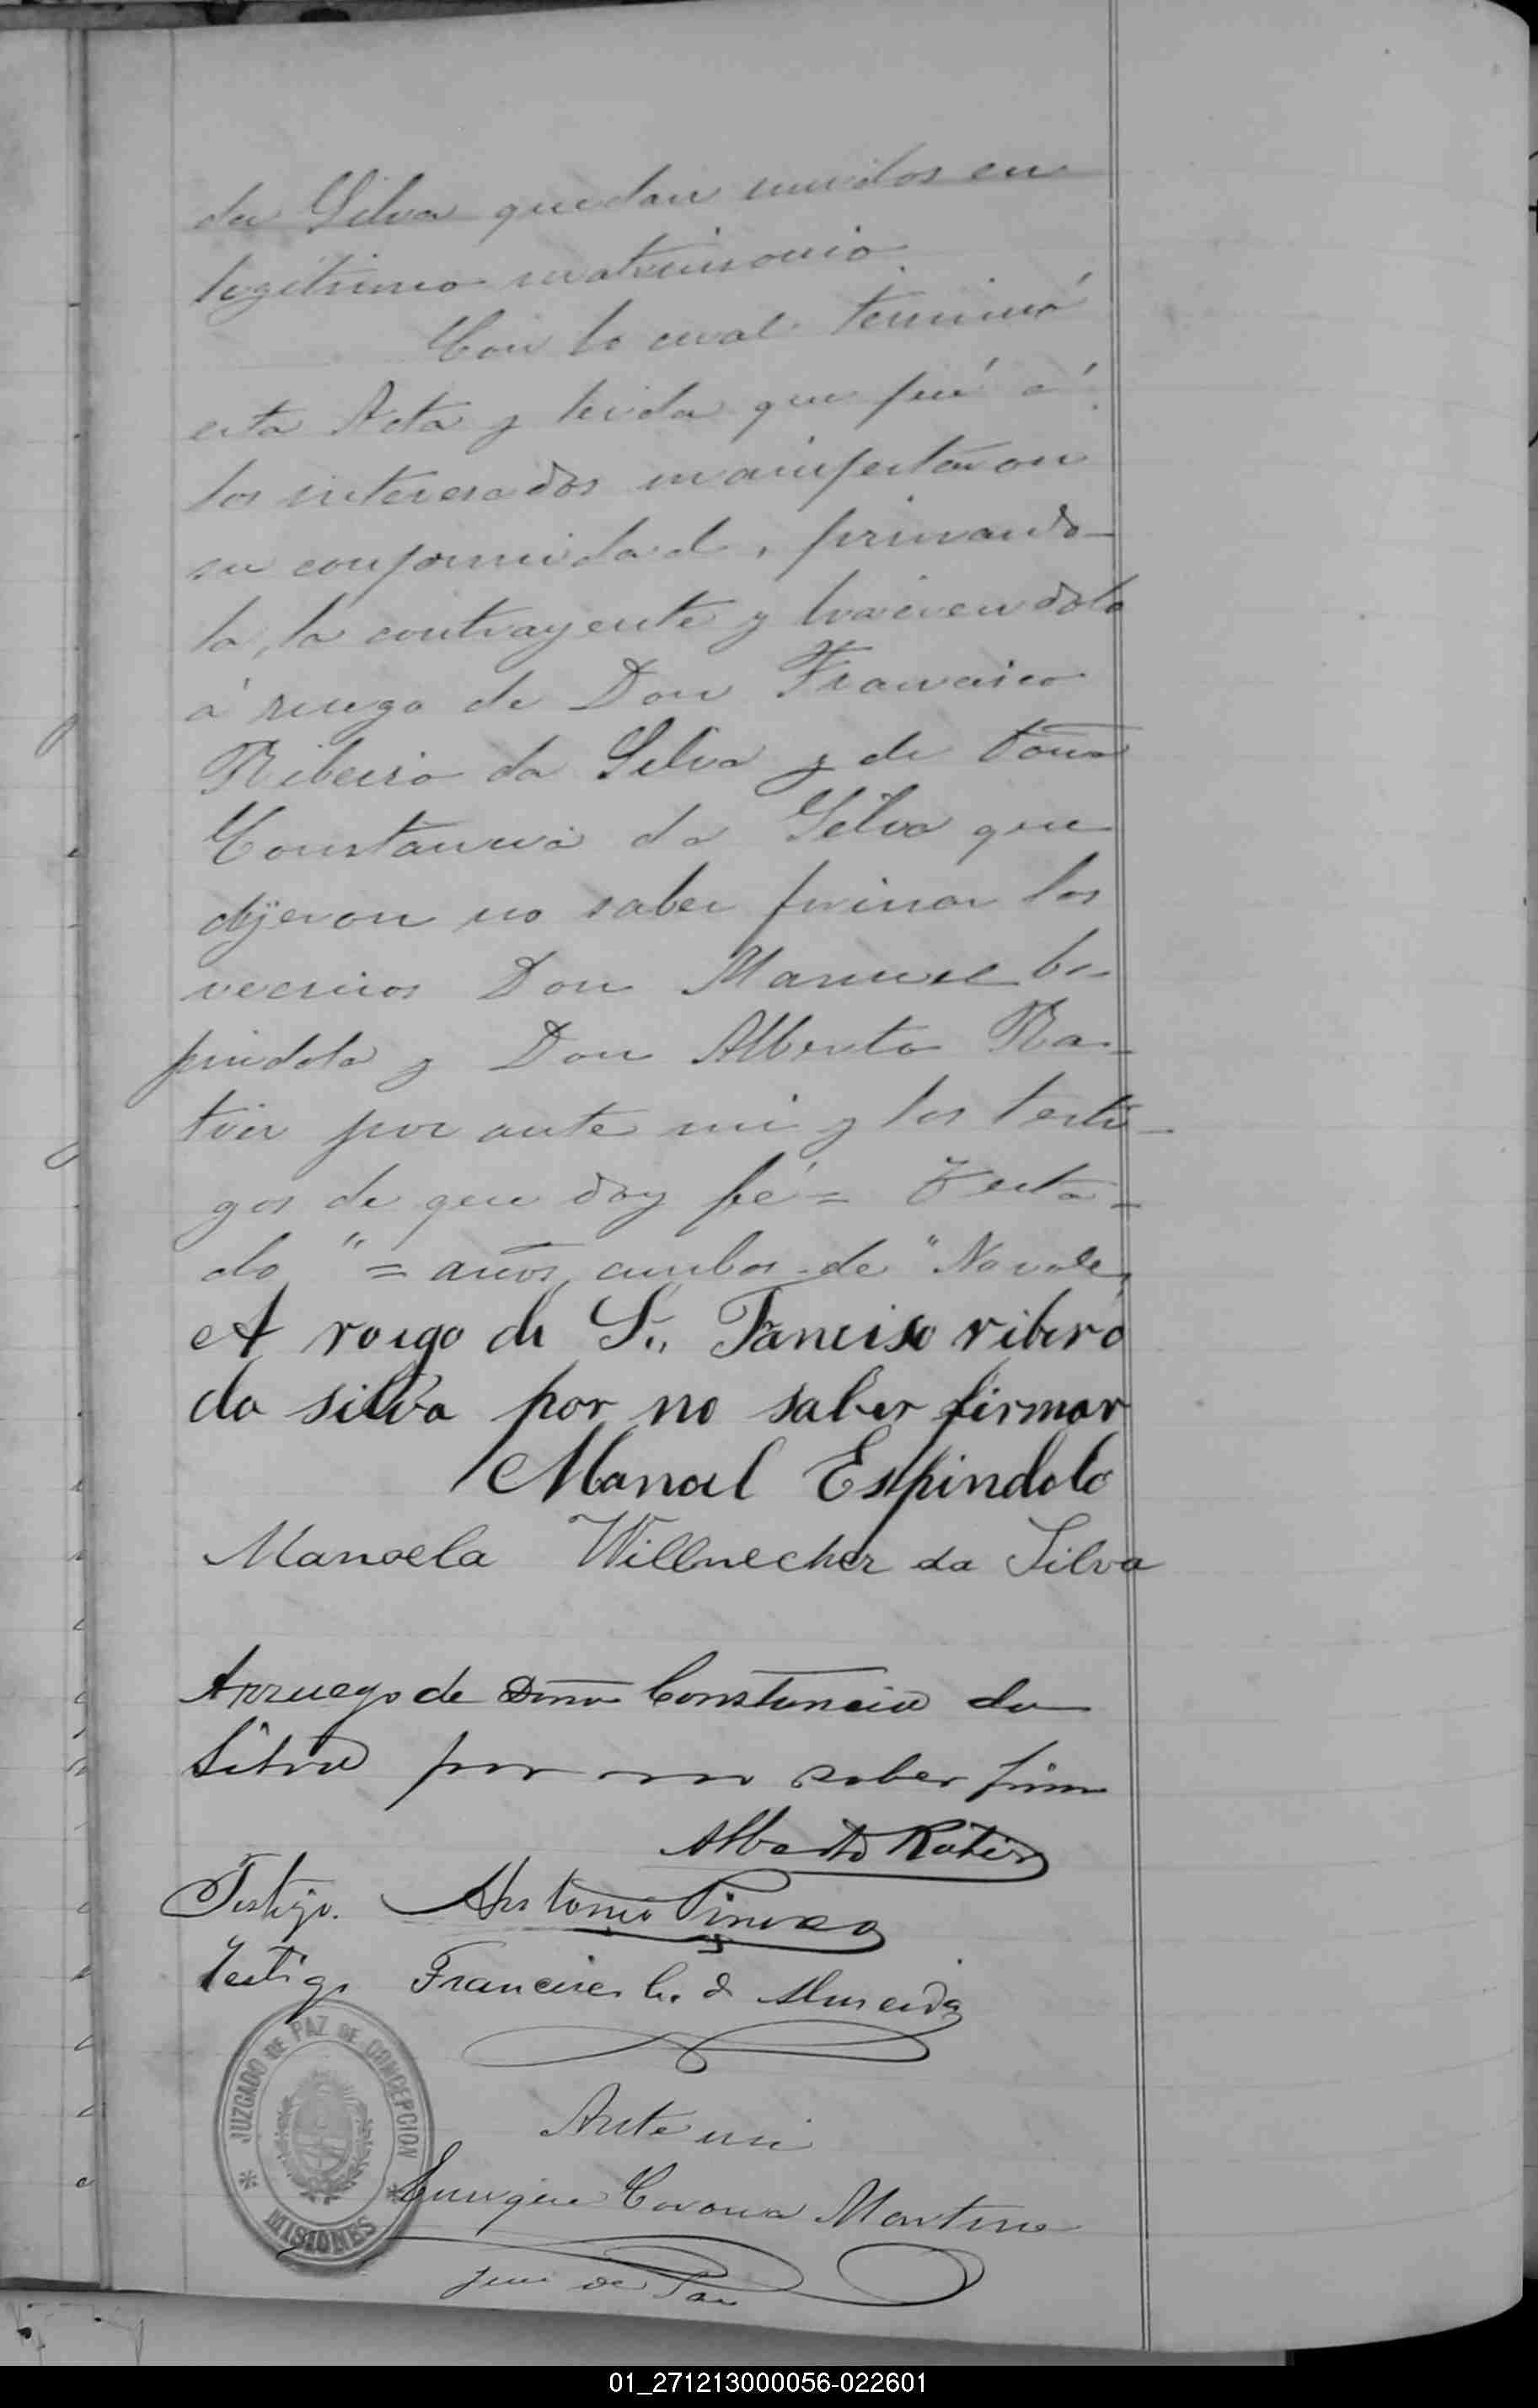 da Silva quedan unidos en
legitimo matrimonio.
Con lo cual terminó
esta Acta y leida que fué á
los interesados manifestaron
su conformidad, firmando-
la, la contrayente y haciendolo
á ruego de Don Francisco
Ribeiro da Silva y de Doña
Constancia da Silva que
dijeron no saber firmar los
vecinos Don Manuel Es-
pindola y Don Alberto Ra-
tier por ante mi y los testi-
gos de que doy fé = Testa-
do " = años, ambos de " No vale,
A roego de S.. Fancisco ribero
da silva por no saber firmar
Manoel Espindola
Manoela Willnecher da Silva
Arruego de Doña Constancia da
Silva por no saber firm
Alberto Ratier
Testigo. Antonio
Testigo Francisco C. d Almeida
JUZGADO DE PAZ DE CONCEPCION
* MISIONES *
Ante mi
Enrique Corona Martinez
Juez de Paz
01_271213000056-022601